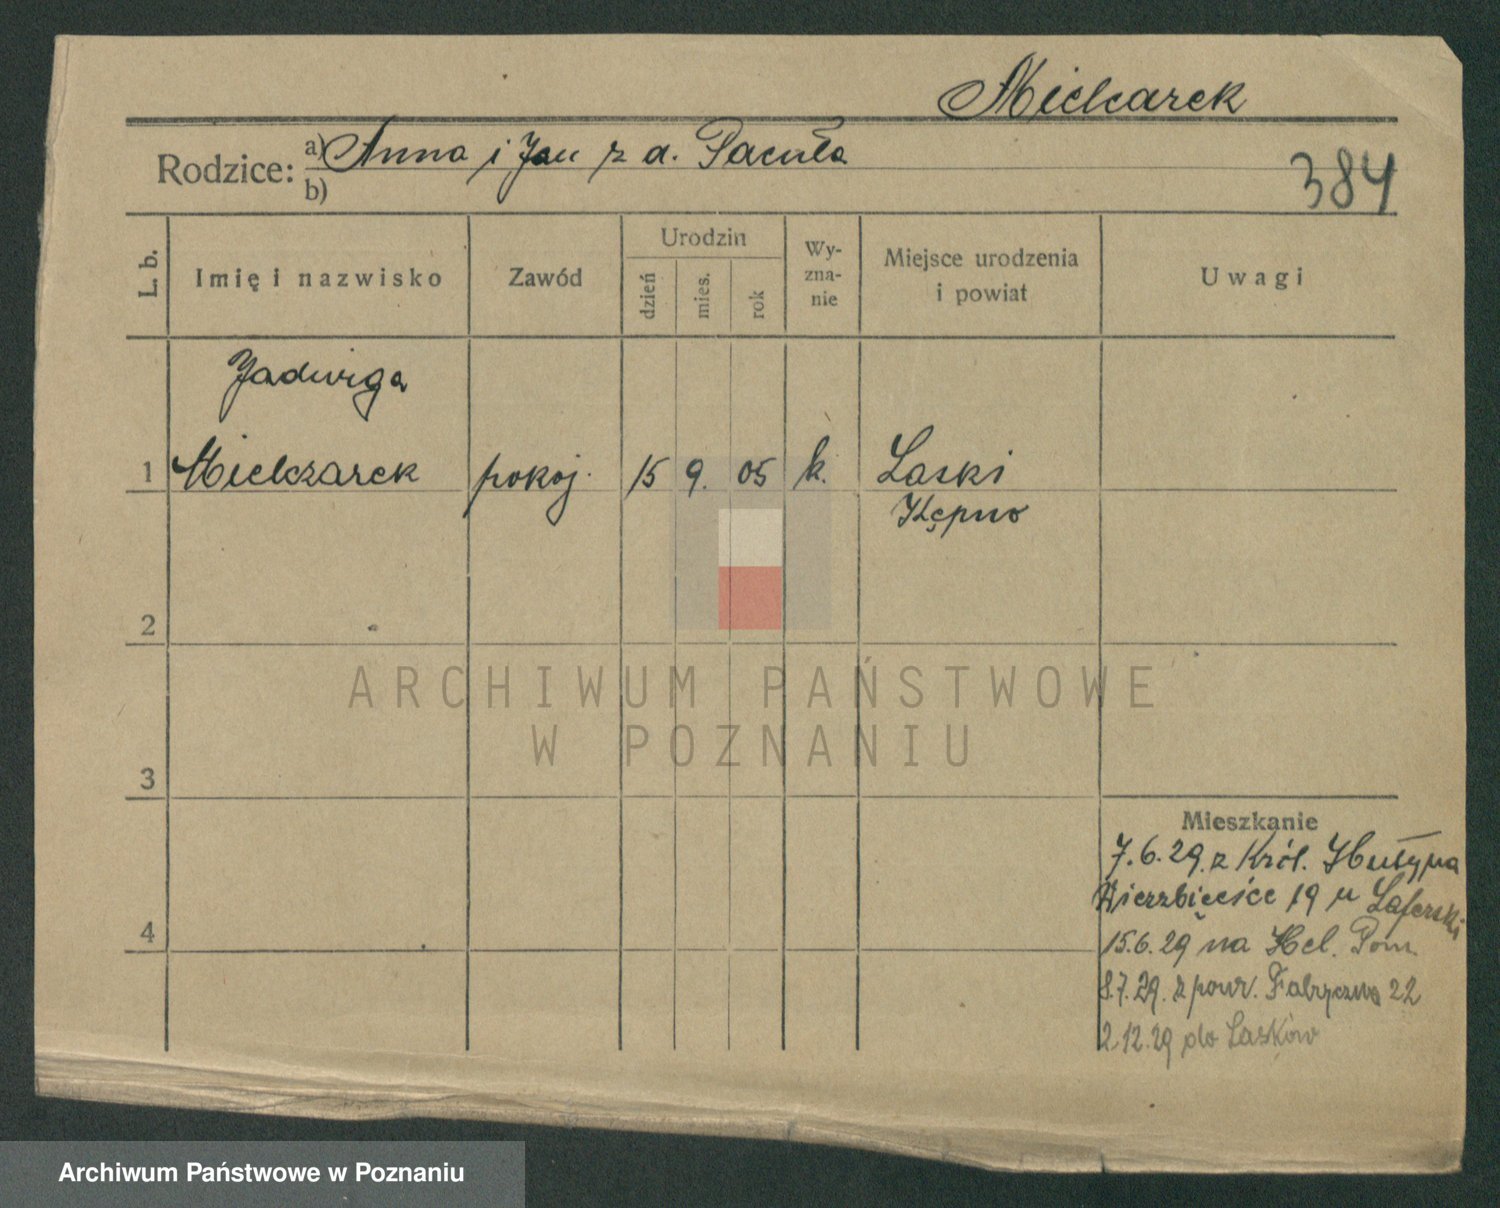 Mielcarek
Rodzice: a) Anna i Jan z d. Pacuła
b)
384
L. b.
Imię i nazwisko
Zawód
Urodzin
dzień
mies.
rok
Wy-
zna-
nie
Miejsce urodzenia
i powiat
Uwagi
Jadwiga
1 Mielczarek pokoj. 15 9. 05 k. Laski
Kępno
2
ARCHIWUM PAŃSTWOWE
W POZNANIU
3
Mieszkanie
7.6.29. z Król. Huty na
Wierzbięcice 19 u
4
15.6.29 na Hel. Pom.
8.7.29. z powr. Fabryczna 22
2.12.29 do Lasków
Archiwum Państwowe w Poznaniu